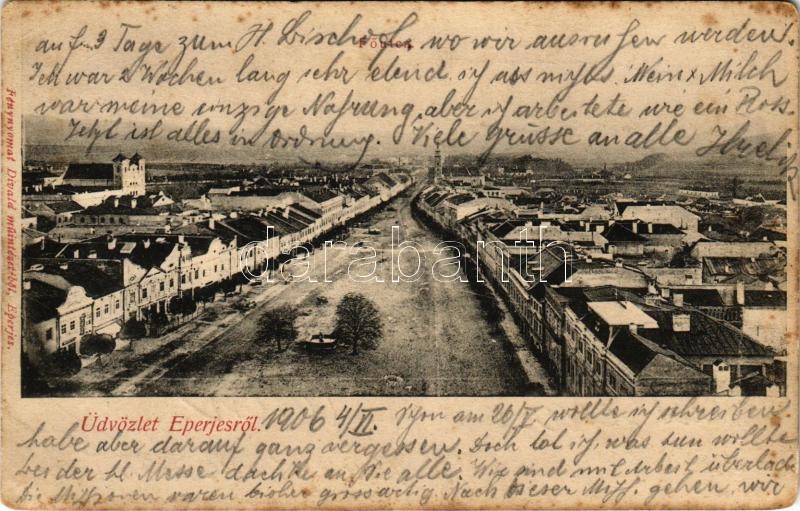 auf 3 Tage zum H. Bischof, wo wir ausrufen werden.
Ich war 2 Wochen lang sehr elend, ich ass nichts. Mein x Milch
war meine einzige Nahrung, aber ich arbeitete wie ein Ross.
Jetzt ist alles in Ordnung. Viele grüsse an alle
Főutca
darabanth
Fénynyomat Divald műintézetéből, Eperjes.
Üdvözlet Eperjesről. 1906 4/II. Schon am 26/I. wollte ich schreiben
habe aber darauf ganz vergessen. Doch tat ich, was tun wollte
bei der hl. Messe dachte an Sie alle. Wir sind mit Arbeit überlade
Die Missionen waren bisher grossartig. Nach dieser Miss. gehen wir